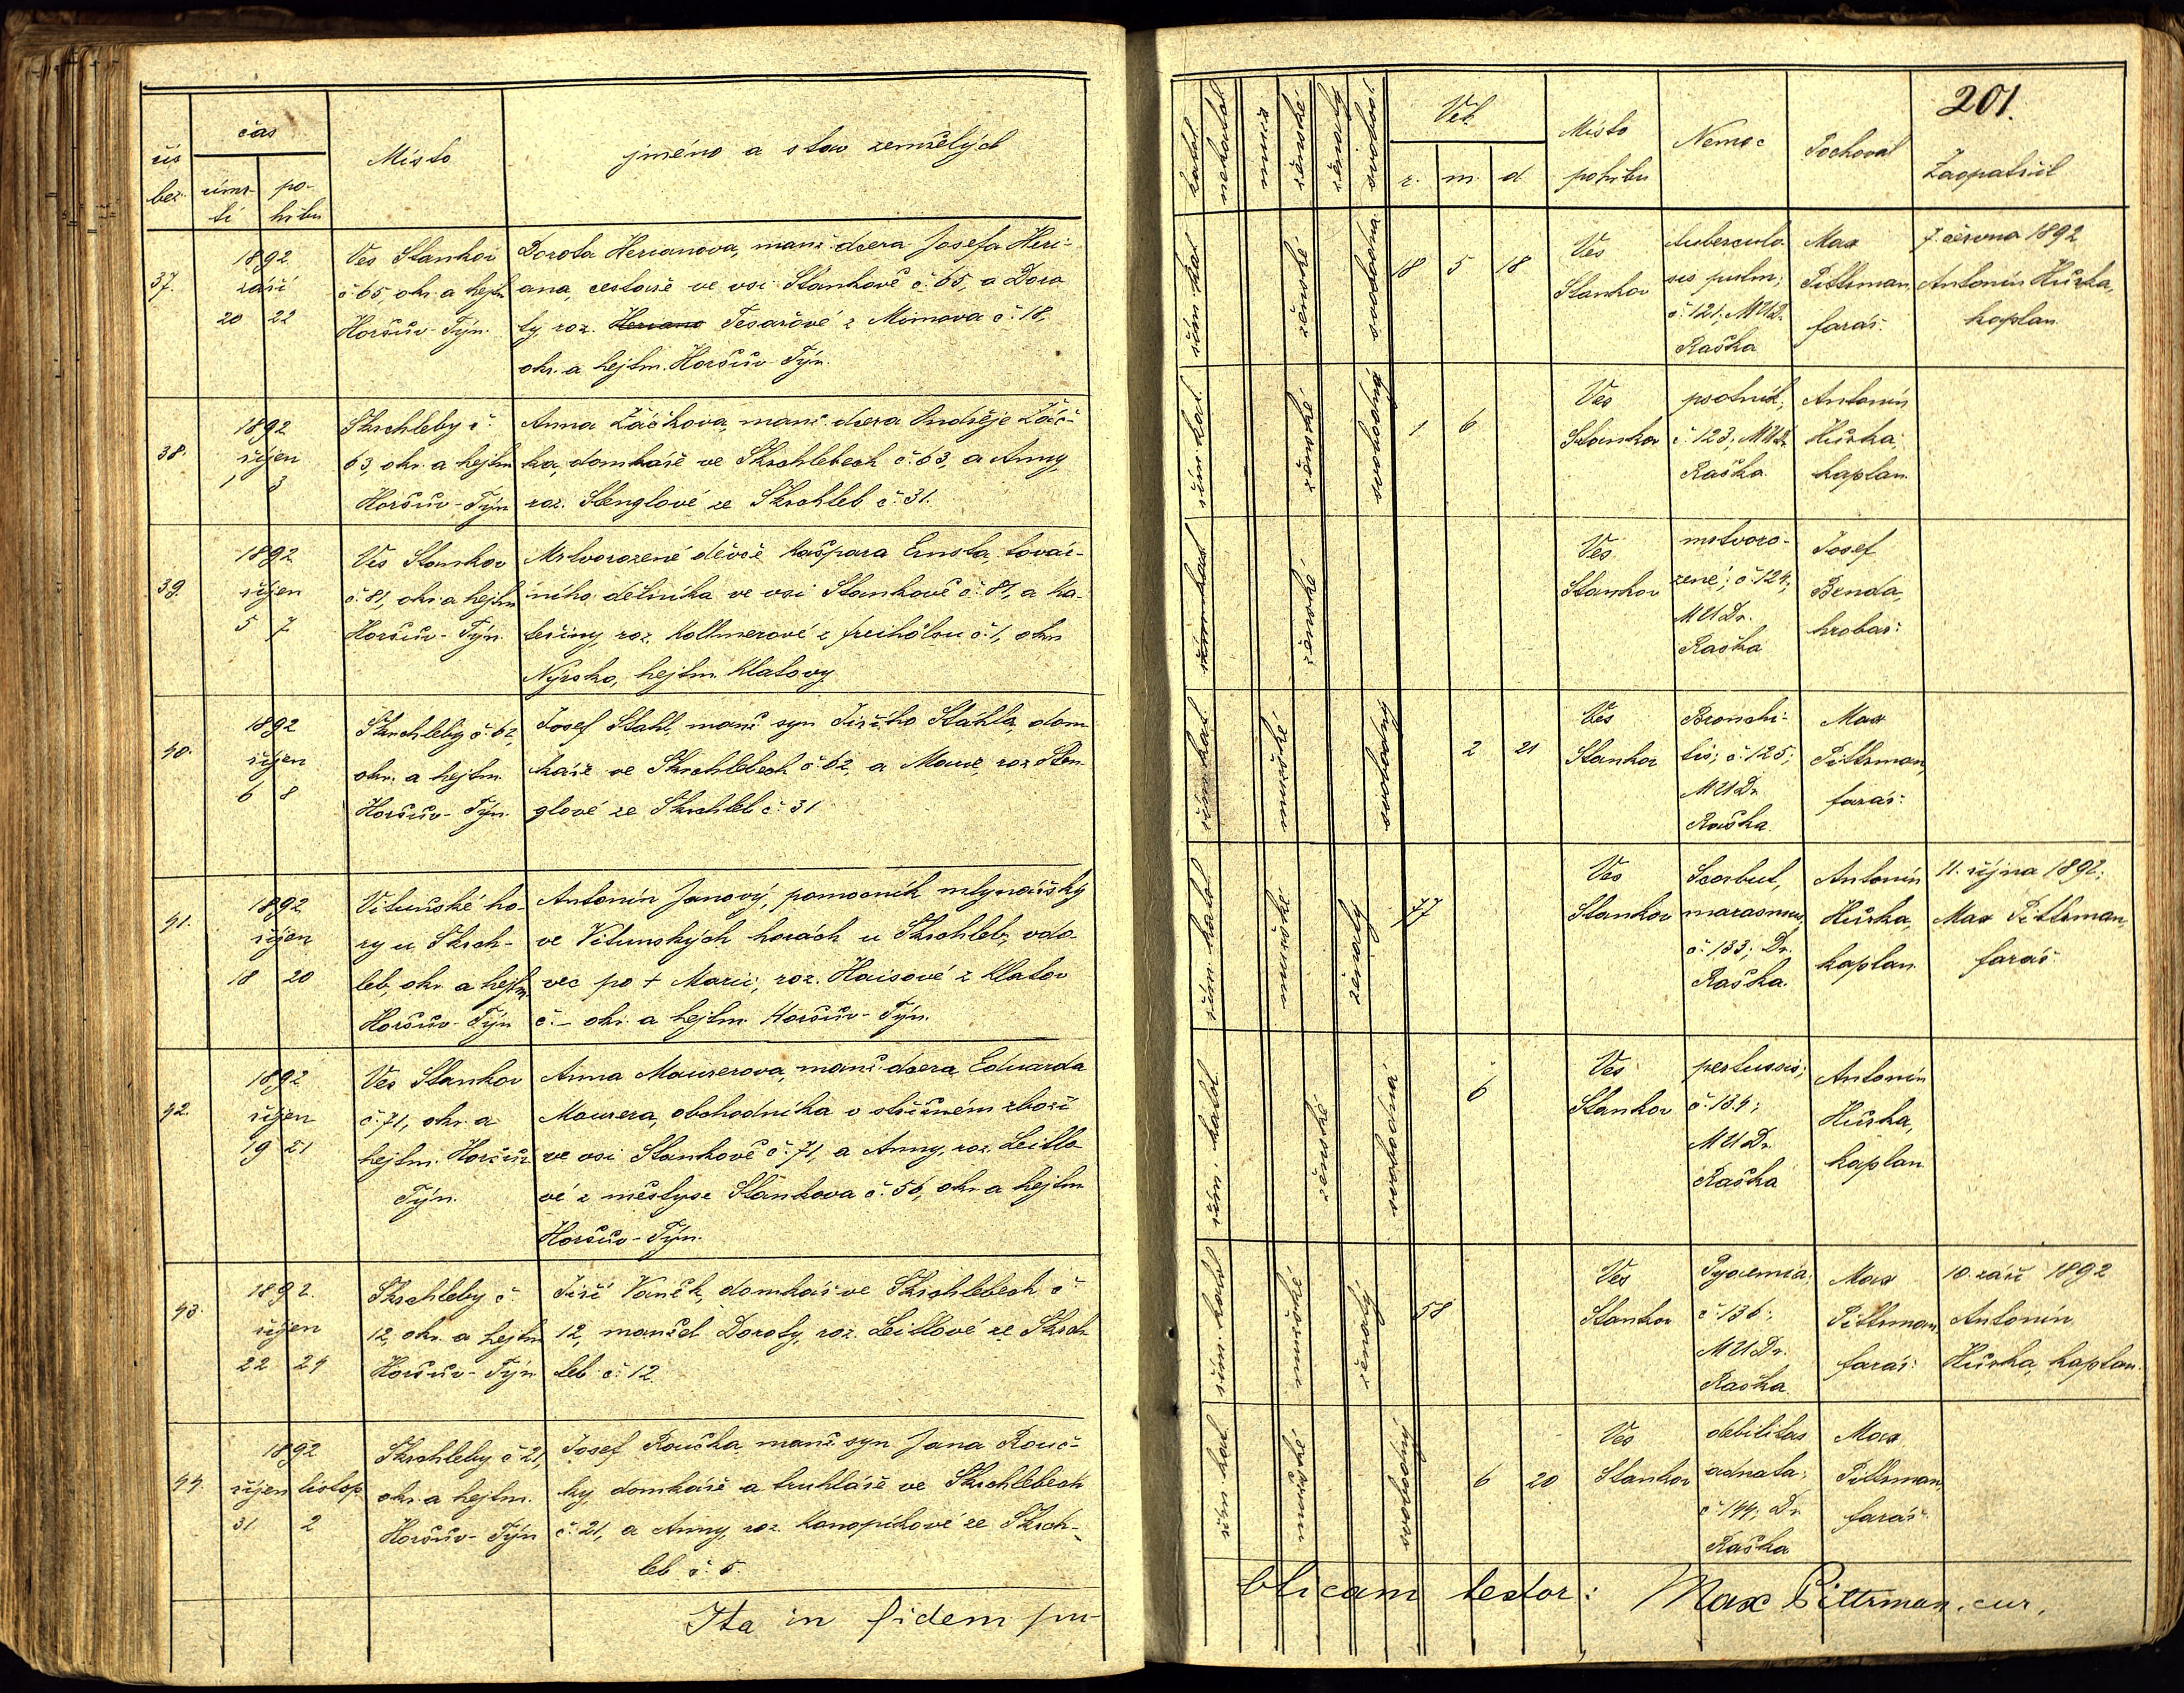 čís
bež.
čas
úmr-
tí
po-
hřbu
Místo
jméno a stav zemřelých
37.
1892.
září
20 22
Ves Stankov
č. 65, okr. a hejtm
Horšův-Týn.
Dorota Herianova, manž. dcera Josefa Heri-
ana, cestáře ve vsi Stankově č. 65, a Doro
ty, roz. Heriano Tesařové z Mimova č. 18,
okr. a hejtm. Horšův-Týn.
38.
1892
říjen
1 3
Skrchleby č.
63, okr. a hejtm
Horšův-Týn
Anna Žáčkova, manž. dcera Ondřeje Žáč-
ka, domkáře ve Skrchlebech č. 63, a Anny,
roz. Stenglové ze Skrchleb č. 31.
39.
1892.
říjen
5 7
Ves Stankov
č. 81, okr. a hejtm
Horšův-Týn.
Mrtvorozené děvče Kašpara Ernsta, továr-
ního dělníka ve vsi Stankově č. 81, a Ka-
teřiny, roz. Kollmerové z Freihölzu č. 1, okr.
Nýrsko, hejtm. Klatovy.
40.
1892
říjen
6 8
Skrchleby č. 62,
okr. a hejtm.
Horšův-Týn.
Josef Stahl, manž. syn Jiřího Stáhla, dom
káře ve Skrchlebech č. 62, a Marie, roz. Sten
glové ze Skrchleb č. 31
41.
1892
říjen
18 20
Vitunské ho-
ry u Skrch-
leb, okr. a hejtm
Horšův-Týn
Antonín Janový, pomocník mlynářský
ve Vitunských horách u Skrchleb, vdo-
vec po + Marii, roz. Haisové z Klatov
č. – okr. a hejtm. Horšův-Týn.
42.
1892
říjen
19 21
Ves Stankov
č. 71, okr. a
hejtm. Horšův
Týn.
Anna Maurerova, manž. dcera Eduarda
Maurera, obchodníka v střižném zboží
ve vsi Stankově č. 71, a Anny, roz. Leitlo
vé z městyse Stankova č. 56, okr. a hejtm
Horšův-Týn.
43.
1892.
říjen
22 24
Skrchleby č.
12, okr. a hejtm
Horšův-Týn
Jiří Vaněk, domkář ve Skrchlebech č.
12, manžel Doroty, roz. Leitlové ze Skrch
leb č. 12
44.
1892
říjen listop.
31 2
Skrchleby č. 21,
okr. a hejtm.
Horšův-Týn
Josef Roučka, manž. syn Jana Rouč-
ky, domkáře a truhláře ve Skrchlebech
č. 21, a Anny, roz. Konopíkové ze Skrch-
leb č. 5.
Ita in fidem pu-
201.
katol.
nekatol
mužs
ženské
ženatý
svobod.
Věk
r. m. d
Místo
pohřbu
Nemoc
Pochoval
Zaopatřil
řím. kat
ženské
svobodna
18 5 18
Ves
Stankov
tuberculo
sis pulm;
č. 121; MUDr.
Raška
Max
Pittrman,
farář.
7. června 1892
Antonín Hůrka,
kaplan.
řím. kat.
ženské
svobodná
1 6
Ves
Stankov
psotník;
č. 123; MUDr.
Raška.
Antonín
Hůrka,
kaplan.
řím. kat
ženské
Ves
Stankov
mrtvoro-
zené; č. 124;
MUDr.
Raška
Josef
Benda,
hrobař.
řím. kat.
mužské
svobodný
2 21
Ves
Stankov
Bronchi-
tis; č. 125;
MUDr.
Raška.
Max
Pittrman,
farář.
řím. katol
mužské
ženatý
77
Ves
Stankov
Scorbut,
marasmus,
č. 133; Dr.
Raška.
Antonín
Hůrka,
kaplan.
11. října 1892;
Max Pittrman,
farář
řím. katol
ženské
svobodná
6
Ves
Stankov
pertussis;
č. 134;
MUDr.
Raška
Antonín
Hůrka,
kaplan
řím. katol
mužské
ženatý
58
Ves
Stankov
Pyaemia;
č. 136;
MUDr.
Raška.
Max
Pittrman,
farář.
10. září 1892
Antonín
Hůrka, kaplan.
řím. kat
mužské
svobodný
6 20
Ves
Stankov
debilitas
adnata;
č. 144; Dr.
Raška
Max
Pittrman,
farář.
blicam testor: Max Pittrman, cur.